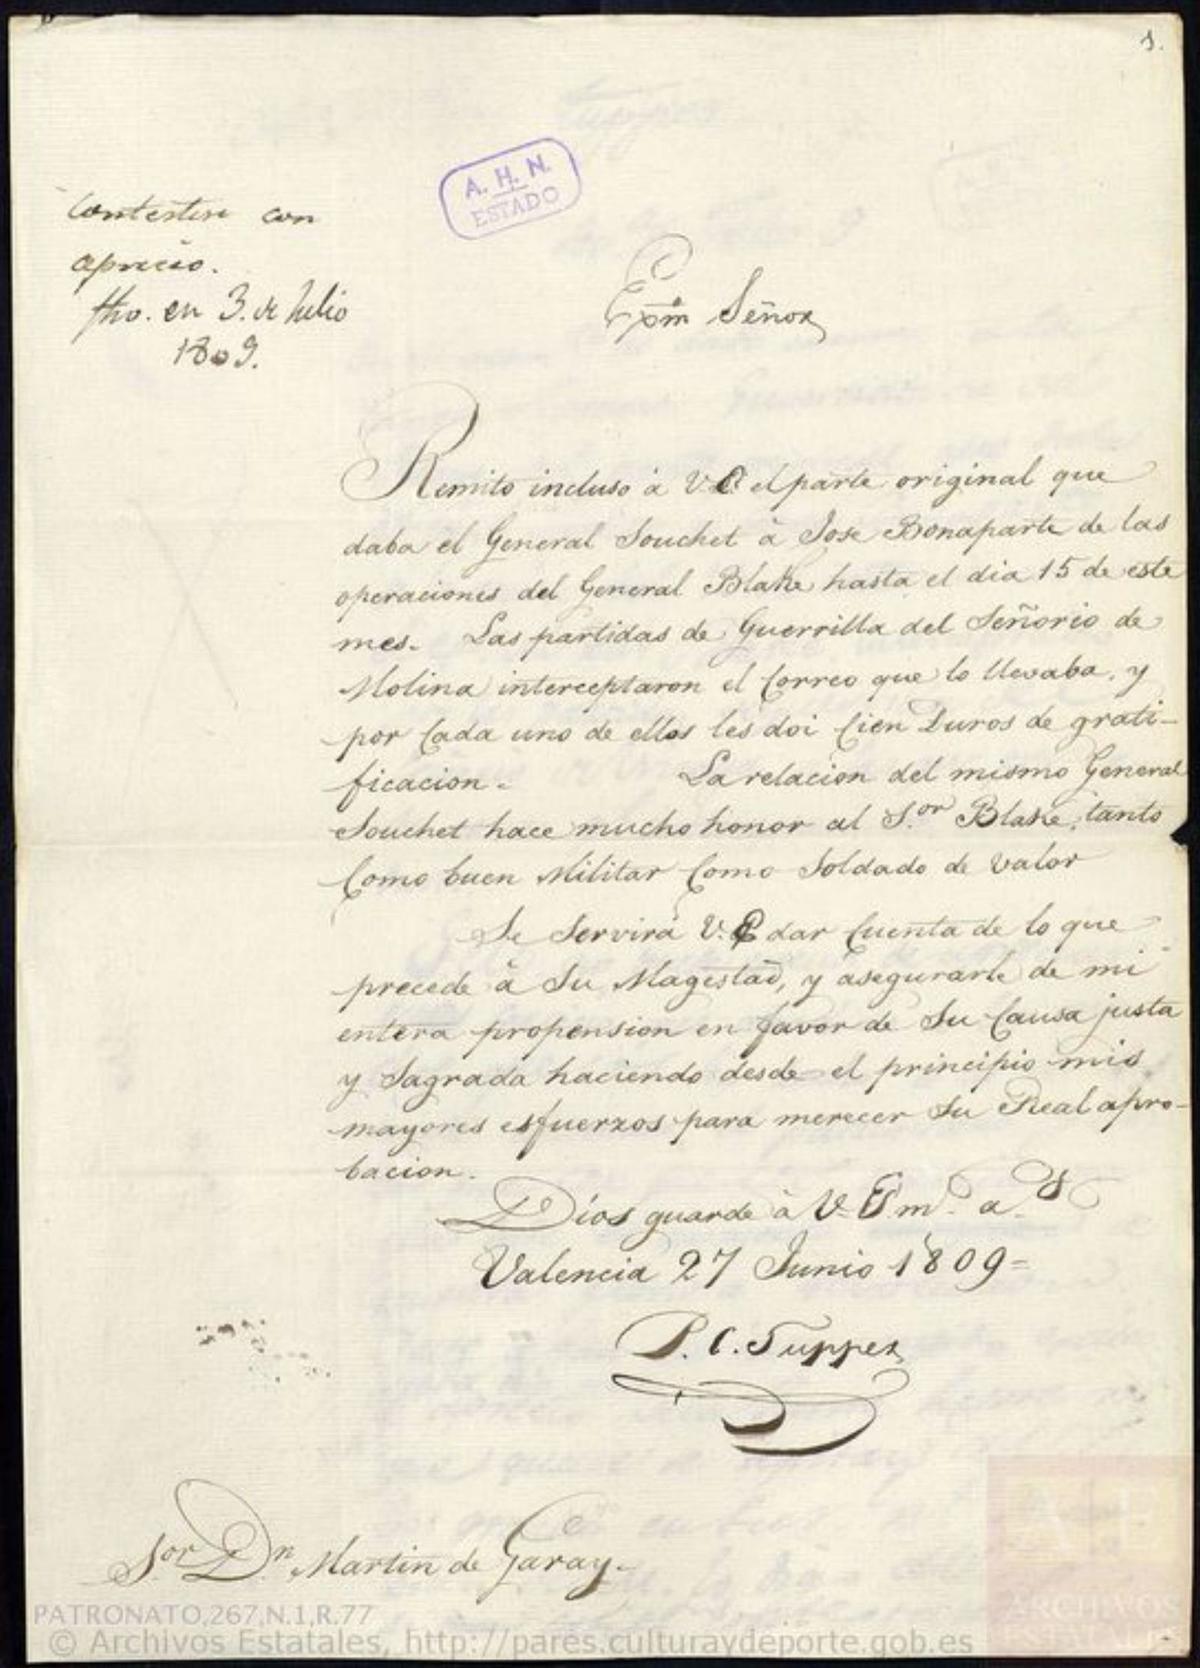 1.
A. H. N.
ESTADO
Contestese con
aprecio.
fho. en 3. de Julio
1809.
Exmo Señor
Remito incluso à V.E. el parte original que
daba el General Souchet à Jose Bonaparte de las
operaciones del General Blake hasta el dia 15 de este
mes. Las partidas de Guerrilla del Señorio de
Molina interceptaron el Correo que lo llevaba, y
por Cada uno de ellos les doi Cien Duros de grati-
ficacion. La relacion del mismo General
Souchet hace mucho honor al S.or Blake, tanto
Como buen Militar Como Soldado de valor
Se Servirá V.E. dar Cuenta de lo que
precede à Su Magestad, y asegurarle de mi
entera propension en favor de Su Causa justa
y Sagrada haciendo desde el principio mis
mayores esfuerzos para merecer Su Real apro-
bacion.
Dios guarde à V.E. m.s a.s
Valencia 27 Junio 1809=
P. C. Tupper
S.or D.n Martin de Garay.
PATRONATO,267,N.1,R.77
© Archivos Estatales, http://pares.culturaydeporte.gob.es
A E
ARCHIVOS
ESTATALES